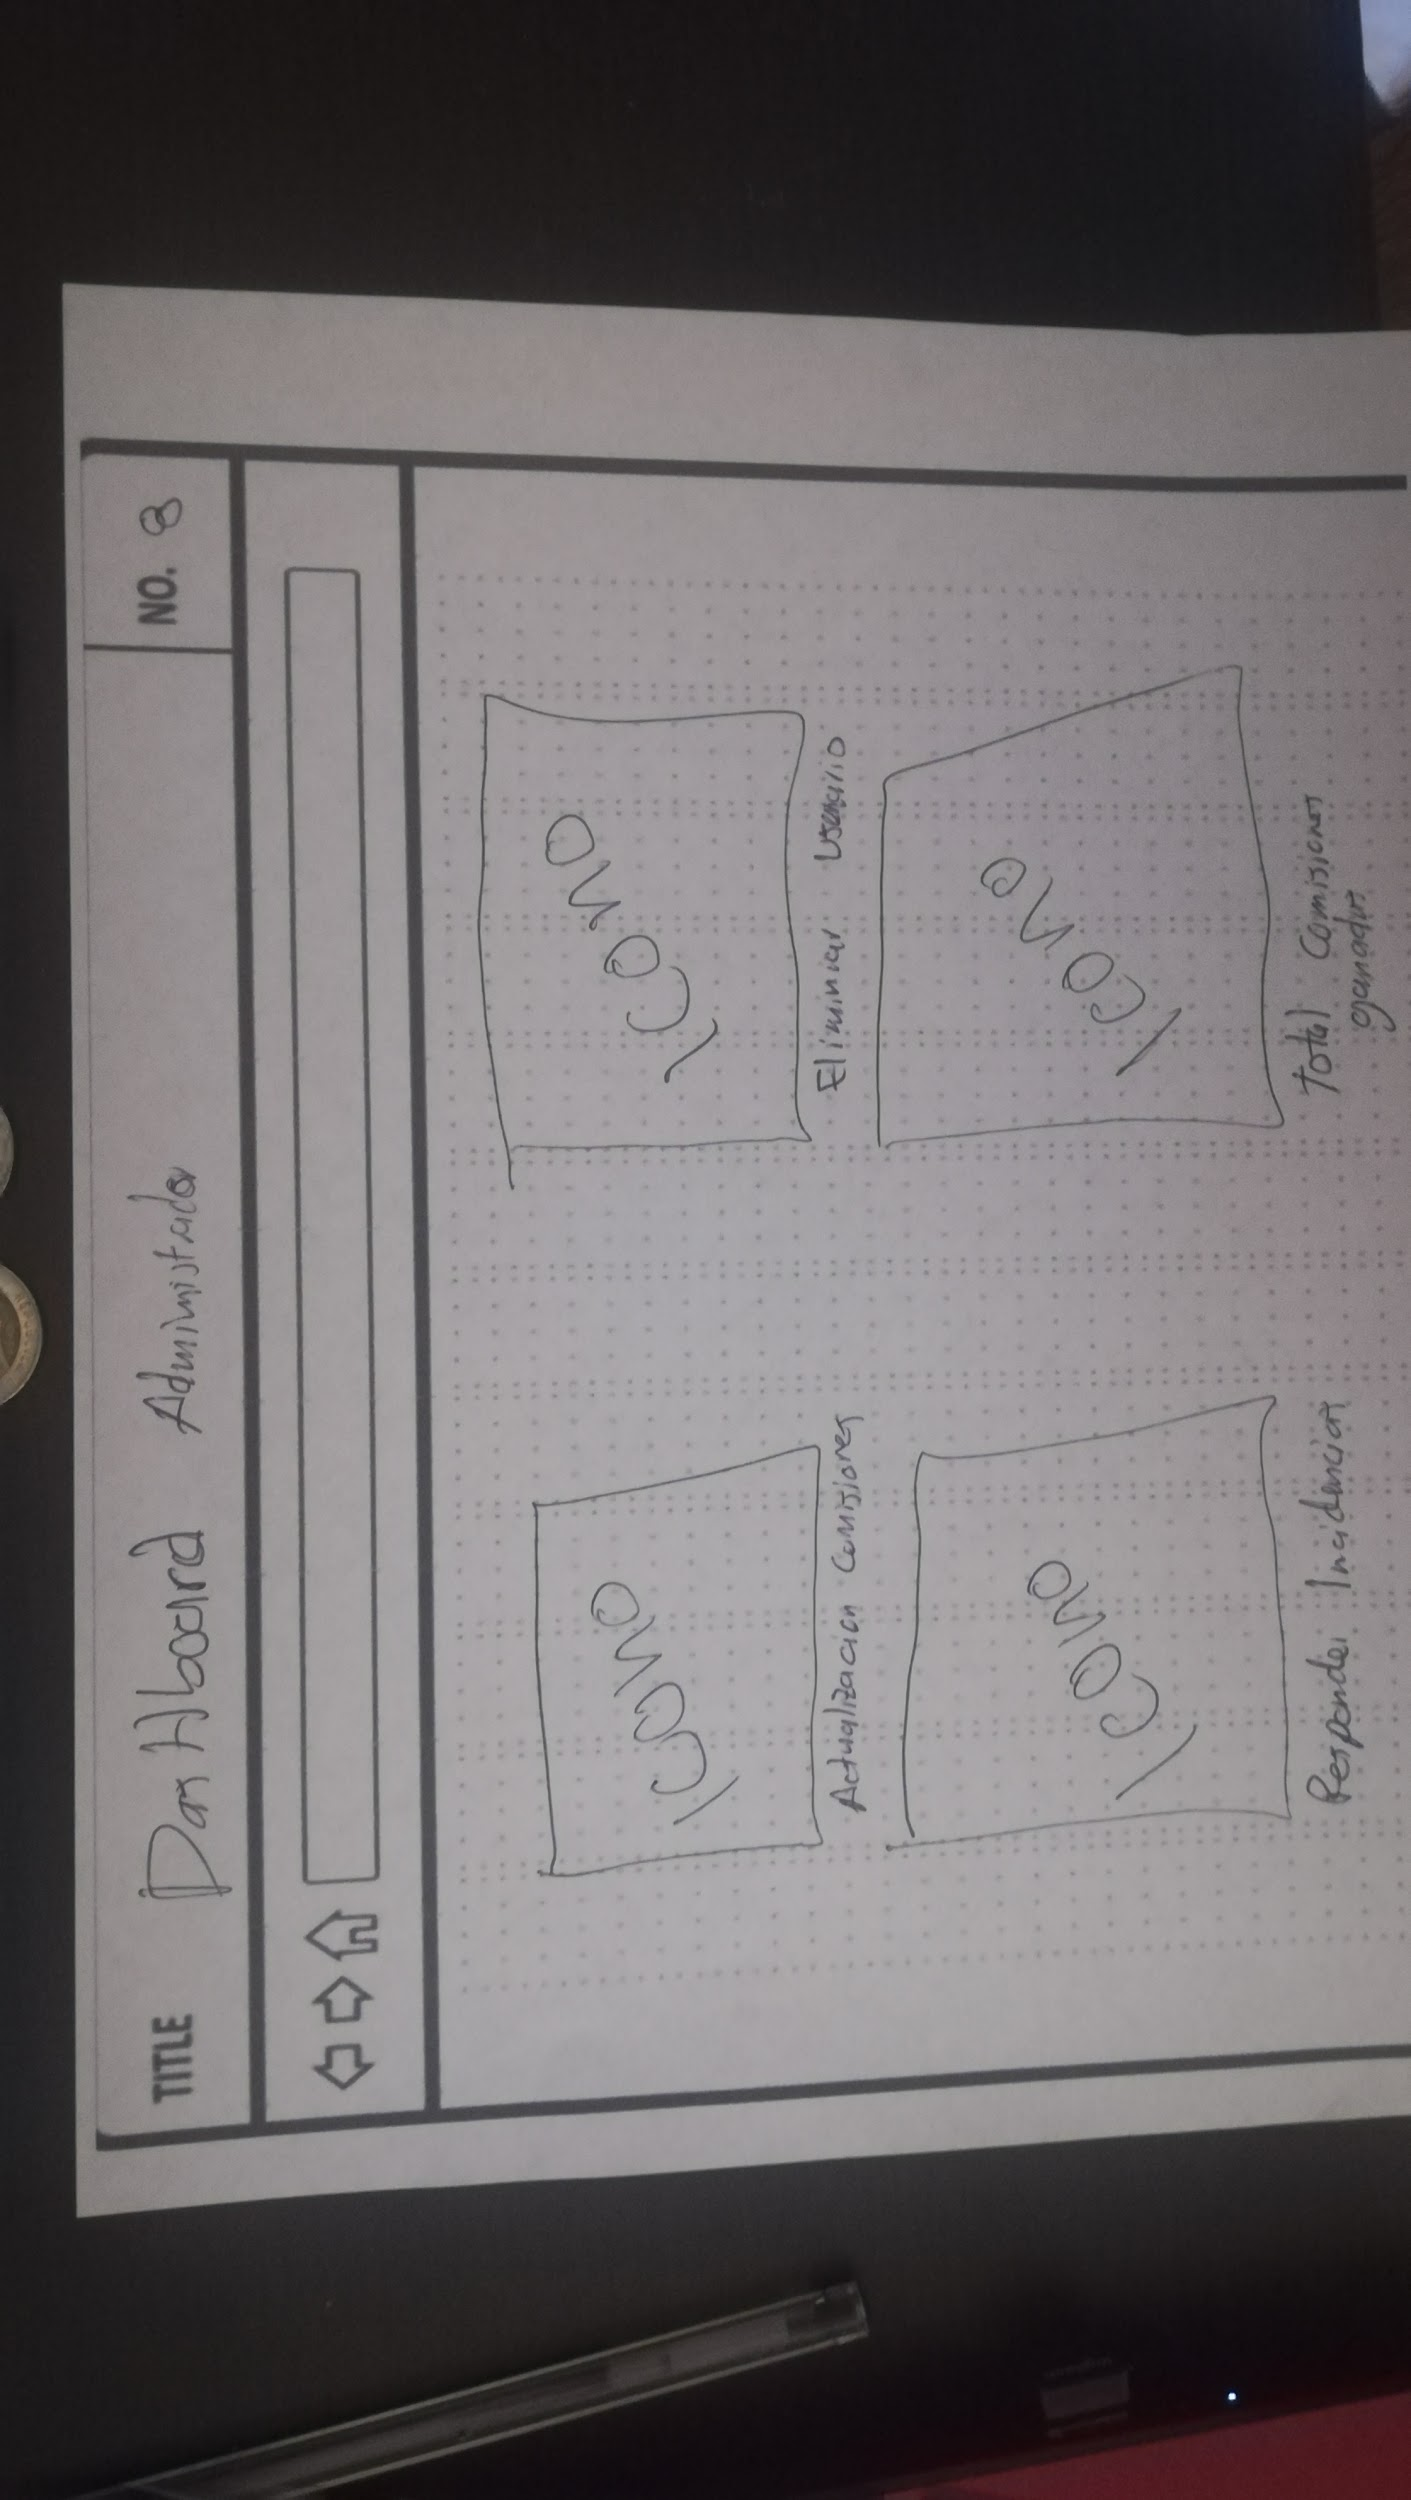 TITLE DasHboard Administrador NO. 8
ICONO ICONO
Actualizacion Comisiones Eliminar Usuario
ICONO ICONO
Responder Incidencias Total Comisiones
ganadas